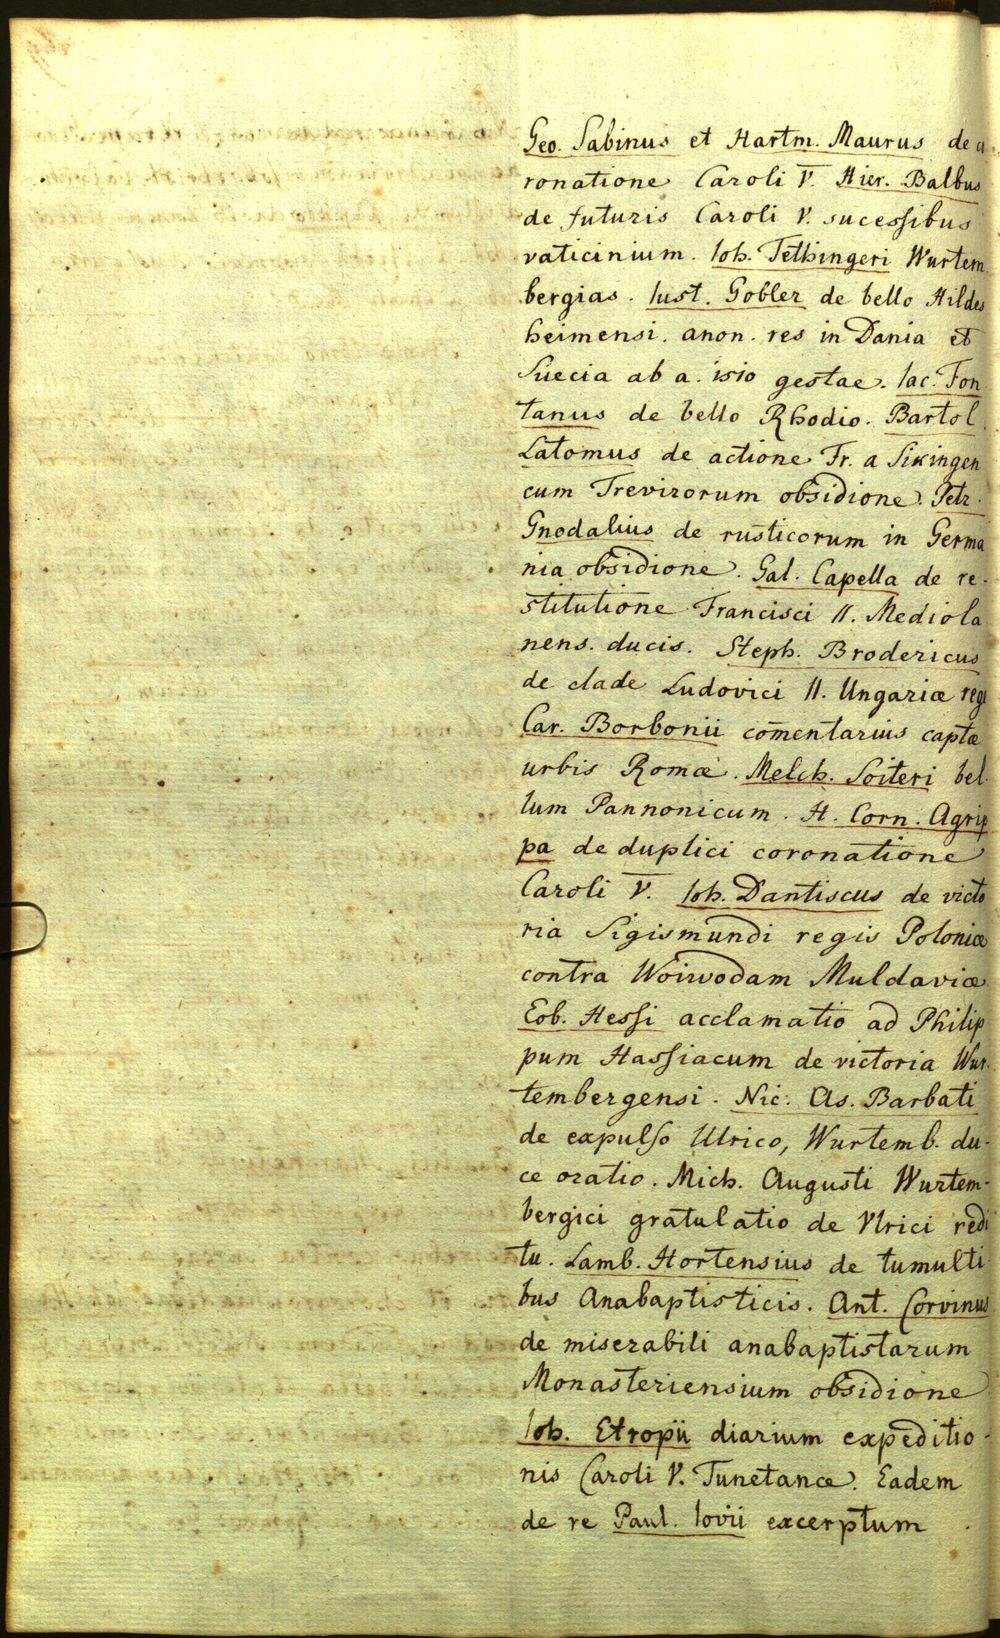 Geo. Sabinus et Hartm. Maurus de
ronatione Caroli V. Hier. Balbus
de futuris Caroli V. sucessibus
vaticinium. Ioh. Tethingeri Wurtem
bergias. Iust. Gobler de bello Hildes
heimensi. anon. res in Dania et
Suecia ab a. 1510 gestae. Iac. Fon
tanus de bello Rhodio. Bartol.
Latomus de actione Fr. a Sikingen
cum Trevirorum obsidione. Petr.
Gnodalius de rusticorum in Germa
nia obsidione. Gal. Capella de re-
stitutione Francisci II. Mediola
nens. ducis. Steph. Brodericus
de clade Ludovici II. Ungariæ regi
Car. Borbonii com̄entarius captæ
urbis Romæ. Melch. Soiteri bel-
lum Pannonicum. H. Corn. Agrip
pa de duplici coronatione
Caroli V. Ioh. Dantiscus de victo
ria Sigismundi regis Poloniæ
contra Woiwodam Muldaviæ
Eob. Hessi acclamatio ad Philip
pum Hassiacum de victoria Wur-
tembergensi. Nic. As. Barbati
de expulso Ulrico, Wurtemb. du-
ce oratio. Mich. Augusti Wurtem-
bergici gratulatio de Vlrici redi
tu. Lamb. Hortensius de tumulti
bus Anabaptisticis. Ant. Corvinus
de miserabili anabaptistarum
Monasteriensium obsidione
Ioh. Etropii diarium expeditio-
nis Caroli V. Tunetanæ. Eadem
de re Paul. Iovii excerptum